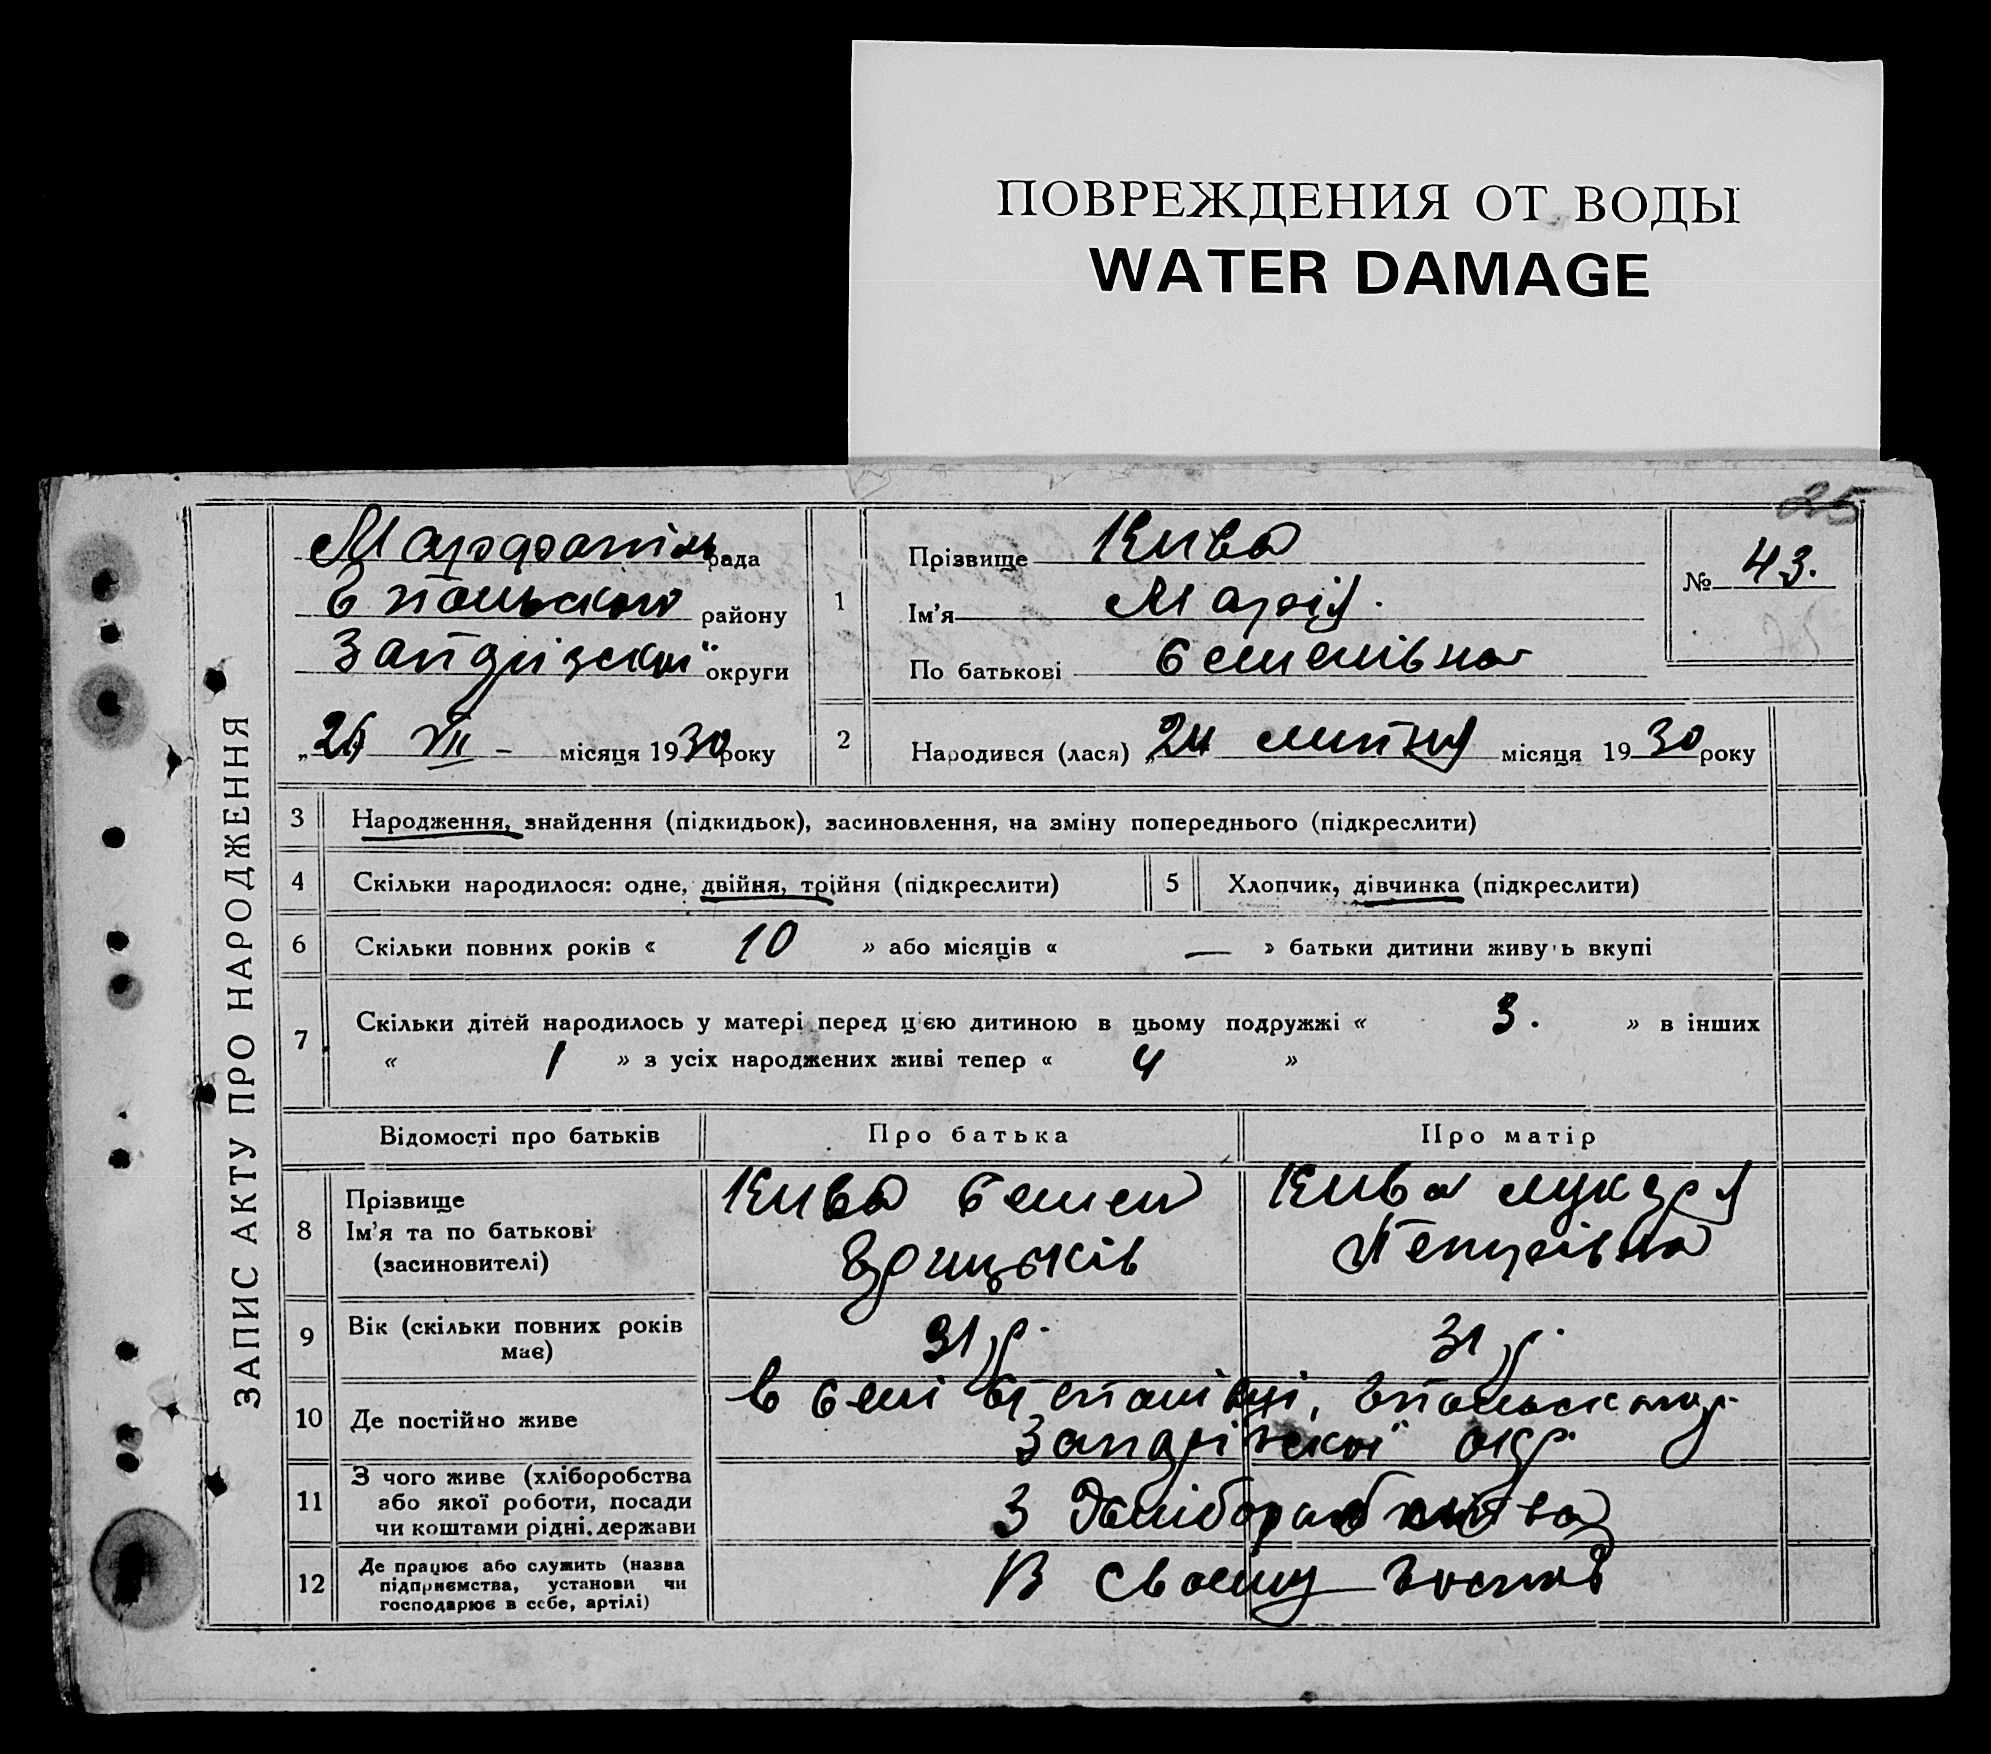 ПОВРЕЖДЕНИЯ ОТ ВОДЫ
WATER DAMAGE
25
ЗАПИС АКТУ ПРО НАРОДЖЕННЯ
рада
району
округи
„ VII - місяця 1930 року
1
Прізвище Кива
Ім'я Марія.
По батькові Семенівна
№ 43.
2
Народився (лася) „24 липня місяця 1930 року
3 Народження, знайдення (підкидьок), засиновлення, на зміну попереднього (підкреслити)
4 Скільки народилося: одне, двійня, трійня (підкреслити)
5 Хлопчик, дівчинка (підкреслити)
6 Скільки повних років « 10 » або місяців « — » батьки дитини живуть вкупі
7 Скільки дітей народилось у матері перед цією дитиною в цьому подружжі « 3. » в інших
« 1 » з усіх народжених живі тепер « 4 »
Відомості про батьків
Про батька
Про матір
8
Прізвище
Ім'я та по батькові
(засиновителі)
Кива Семен
Грицьків
Кива
Петрівна
9
Вік (скільки повних років
має)
31 р.
31 р.
10 Де постійно живе
в селі
окр.
11
З чого живе (хліборобства
або якої роботи, посади
чи коштами рідні, держави
З
12
Де працює або служить (назва
підприємства, установи чи
господарює в себе, артілі)
В своєму господ